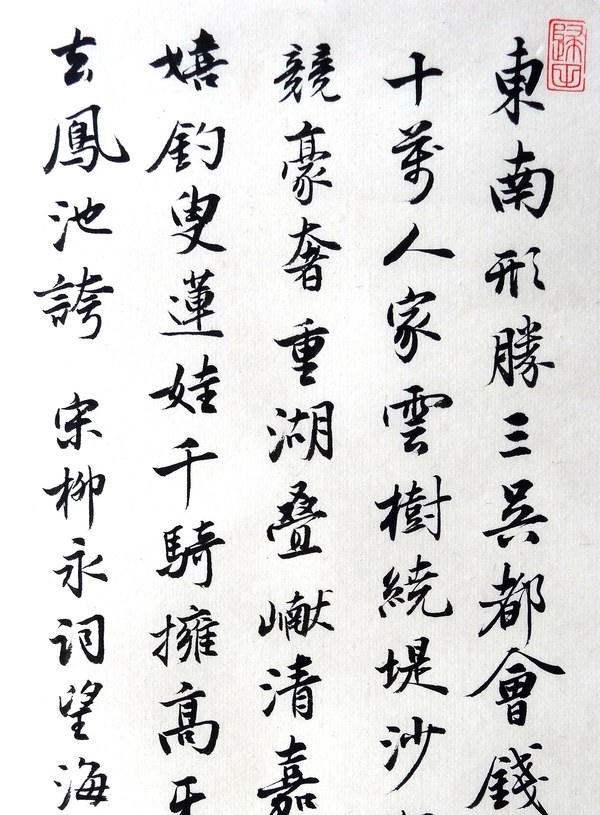 東南形勝三吳都會錢
十萬人家雲樹繞堤沙
競豪奢重湖疊巘清嘉
嬉釣叟蓮娃千騎擁高牙
去鳳池誇 宋柳永詞望海